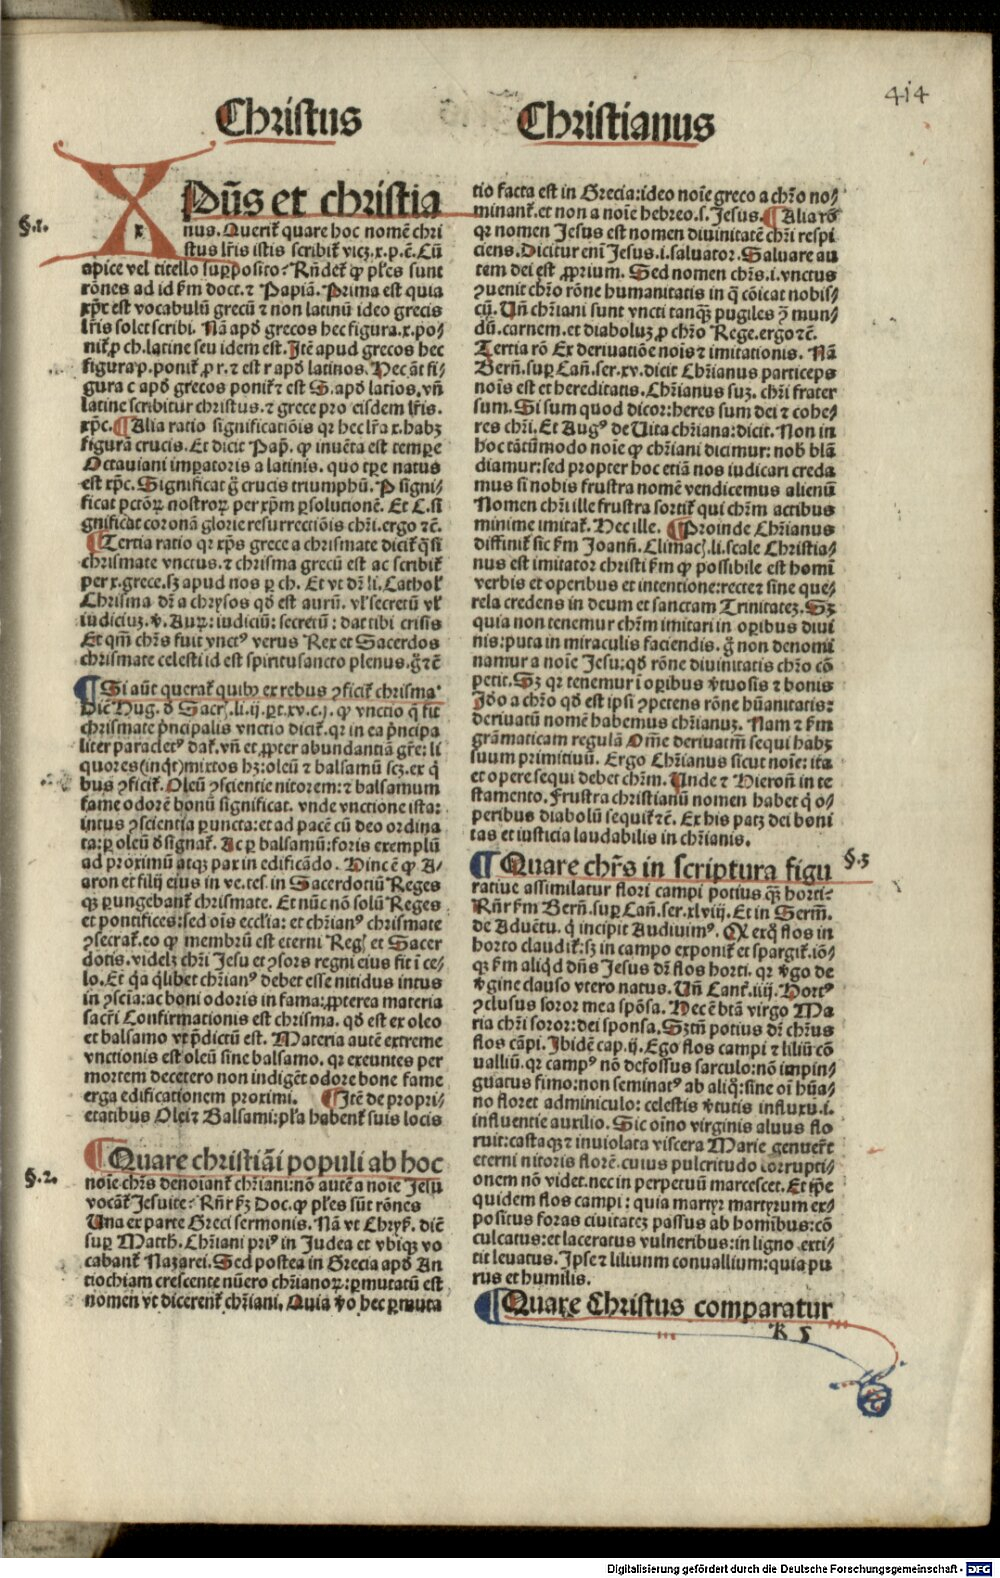 414
Christus
Christianus
§.1.
XPūs et christia
nus. Querit̄ quare hoc nomē chri
stus lr̄is istis scribit̄ vicꝫ.x.p.c̄. Cū
apice vel titello suꝑposito? Rn̄det̄ ꝙ pl̄es sunt
rōnes ad id ẜm doct.⁊ Papiā. Prima est quia
xp̄c est vocabulū grecū ⁊ non latinū ideo grecis
lr̄is solet scribi. Nā apd̄ grecos hec figura.x.po⸗
nit̄ ꝓ ch.latine seu idem est. Itē apud grecos hec
figura.p.ponit̄ ꝓ r.⁊ est r apd̄ latinos. Hec āt fi⸗
gura c apd̄ grecos ponit̄ ⁊ est S. apd̄ latīos.vn̄
latine scribitur christus.⁊ grece pro eisdem lr̄is.
xp̄c. ¶ Alia ratio significatiōis qr hec lr̄a x.habꝫ
figurā crucis. Et dicit Pap̄. ꝙ inuēta est tempe
Octauiani imꝑatoris a latinis. quo tꝑe natus
est xp̄c. Significat g̃ crucis triumphū. P signi⸗
ficat pctōꝝ nostroꝝ per xp̄m ꝑsolutionē. Et C.si
gnificat coronā glorie resurrectiōis chr̄i.ergo ⁊c̄.
¶ Tertia ratio qr xp̄s grece a chrismate dicit̄ q̄si
chrismate vnctus.⁊ chrisma grecū est ac scribit̄
per x.grece.sꝫ apud nos ꝑ ch. Et vt dr̄ li. Cathol̄
Chrisma dr̄ a chrysos qd̄ est aurū. vl̄ secretū vl̄
iudiciuꝫ.v̄. Auꝝ: iudiciū: secretū: dat tibi crisis
Et qm̄ chr̄s fuit vnctꝰ verus Rex et Sacerdos
chrismate celesti id est spiritusancto plenus.g̃ ⁊c̄
¶ Si aūt querat̄ quibꝫ ex rebus ꝯficit̄ chrisma?
Dic̄ Hug. d̄ Sacr̄.li.ij.ꝑt.xv.c.j. ꝙ vnctio q̄ fit
chrismate p̄ncipalis vnctio dicit̄. qr in ea p̄ncipa
liter paracletꝰ dat̄.vn̄ et ꝓpter abundantiā gr̄e: li
quores(inq̄t)mixtos hꝫ: oleū ⁊ balsamū scꝫ.ex q̄
bus ꝯficit̄. Oleū ꝯscientie nitorem: ⁊ balsamum
fame odorē bonū significat. vnde vnctione ista:
intus ꝯscientia ꝑuncta: et ad pacē cū deo ordina
ta: ꝑ oleū d̄signat̄. Ac ꝑ balsamū: foris exemplū
ad proximū atqꝫ pax in edificādo. Hinc ē ꝙ A⸗
aron et filij eius in ve.tes. in Sacerdotiū Reges
qꝫ ꝑungebant̄ chrismate. Et nūc nō solū Reges
et pontifices: sed oīs ecclīa: et chr̄ianꝰ chrismate
ꝯsecrat̄.eo ꝙ membrū est eterni Regꝭ et Sacer
dotis. videlꝫ chr̄i Jesu et ꝯsors regni eius fit ī ce⸗
lo. Et q̄a q̄libet chr̄ianꝰ debet esse nitidus intus
in ꝯscīa: ac boni odoris in fama: ꝓpterea materia
sacr̄i Confirmationis est chrisma. qd̄ est ex oleo
et balsamo vt p̄dictū est. Materia autē extreme
vnctionis est oleū sine balsamo. qr exeuntes per
mortem decetero non indigēt odore bone fame
erga edificationem proximi. ¶ Itē de propri⸗
etatibus Olei ⁊ Balsami: pl̄a habent̄ suis locis
§.2.
¶ Quare christiāi populi ab hoc
noīe chr̄s denoīant̄ chr̄iani: nō autē a noīe Jesū
vocāt̄ Jesuite? Rn̄r ẜꝫ Doc. ꝙ pl̄es sūt rōnes
Una ex parte Greci sermonis. Nā vt Chrys̄. dic̄
suꝑ Matth̄. Chr̄iani priꝰ in Judea et vbiqꝫ vo
cabant̄ Nazarei. Sed postea in Grecia apd̄ An
tiochiam crescente nūero chr̄ianoꝝ: ꝑmutatū est
nomen vt dicerent̄ chr̄iani. Quia v̄o hec ꝑmuta
tio facta est in Grecia: ideo noīe greco a chr̄o no⸗
minant̄.et non a noīe hebreo.s. Jesus. ¶ Alia rō
qr nomen Jesus est nomen diuinitatē chr̄i respi
ciens. Dicitur eni Jesus.i.saluator. Saluare au
tem dei est ꝓprium. Sed nomen chr̄s.i.vnctus
ꝯuenit chr̄o rōne humanitatis in q̄ cōicat nobis⸗
cū. Un̄ chr̄iani sunt vncti tanqꝫ pugiles ꝯ̄ mun⸗
dū.carnem.et diaboluꝫ ꝓ chr̄o Rege.ergo ⁊c̄.
Tertia rō Ex deriuatiōe noīs ⁊ imitationis. Nā
Bern̄.suꝑ Can̄.ser.xv.dicit Chr̄ianus particeps
noīs est et hereditatis. Chr̄ianus suꝫ. chr̄i frater
sum. Si sum quod dicor: heres sum dei ⁊ cohe⸗
res chr̄i. Et Augꝰ de Uita chr̄iana: dicit. Non in
hoc tātūmodo noīe ꝙ chr̄iani dicimur: nob̄ blā
diamur: sed propter hoc etiā nos iudicari creda
mus si nobis frustra nomē vendicemus alienū
Nomen chr̄i ille frustra sortit̄ qui chr̄m actibus
minime imitat̄. Hec ille. ¶ Proinde Chr̄ianus
diffinit̄ sic ẜm Joann̄. Climach̄.li.scale Christia⸗
nus est imitator christi ẜm ꝙ possibile est homī
verbis et operibus et intentione: recte ⁊ sine que⸗
rela credens in deum et sanctam Trinitateꝫ. Sꝫ
quia non tenemur chr̄m imitari in oꝑibus diui
nis: puta in miraculis faciendis. g̃ non denomi
namur a noīe Jesu: qd̄ rōne diuinitatis chr̄o cō
petit. Sꝫ qr tenemur ī oꝑibus v̄tuosis ⁊ bonis
Jd̄o a chr̄o qd̄ est ipsi ꝯpetens rōne hūanitatis:
deriuatū nomē habemus chr̄ianuꝫ. Nam ⁊ ẜm
grāmaticam regulā Om̄e deriuatm̄ sequi habꝫ
suum primitiuū. Ergo Chr̄ianus sicut noīe: ita
et opere sequi debet chr̄m. Unde ⁊ Hieron̄ in te
stamento. Frustra christianū nomen habet q̄ o⸗
peribus diabolū sequit̄ ⁊c̄. Ex his patꝫ dei boni
tas et iusticia laudabilis in chr̄ianis.
§.3
¶ Quare chr̄s in scriptura figu
ratiue assimilatur flori campi potius qꝫ horti?
Rn̄r ẜm Bern̄.suꝑ Can̄.ser.xlviij. Et in Serm̄.
de Aduētu. q̄ incipit Audiuimꝰ. Qr exq̄ flos in
horto claudit̄: sꝫ in campo exponit̄ et spargit̄.iō⸗
qꝫ ẜm aliq̄d dn̄s Jesus dr̄ flos horti. qr v̄go de
v̄gine clauso vtero natus. Un̄ Cant̄.iiij. Hortꝰ
ꝯclusus soror mea spōsa. Hec ē btā virgo Ma
ria chr̄i soror: dei sponsa. Sꝫ tn̄ potius dr̄ chr̄us
flos cāpi. Ibidē cap.ij. Ego flos campi ⁊ liliū cō
ualliū. qr campꝰ nō defossus sarculo: nō impin⸗
guatus fimo: non seminatꝰ ab aliq̄: sine oī hūa⸗
no floret adminiculo: celestis v̄tutis influxu.i.
influentie auxilio. Sic oīno virginis aluus flo
ruit: casta qꝫ ⁊ inuiolata viscera Marie genuer̄t
eterni nitoris florē. cuius pulcritudo corrupti⸗
onem nō videt. nec in perpetuū marcescet. Et ip̄e
quidem flos campi: quia martyr martyrum ex⸗
positus foras ciuitateꝫ passus ab homībus: cō
culcatus: et laceratus vulneribus: in ligno exti⸗
tit leuatus. Ipse ⁊ lilium conuallium: quia pu
rus et humilis.
¶ Quare Christus comparatur
R 5
Digitalisierung gefördert durch die Deutsche Forschungsgemeinschaft - DFG